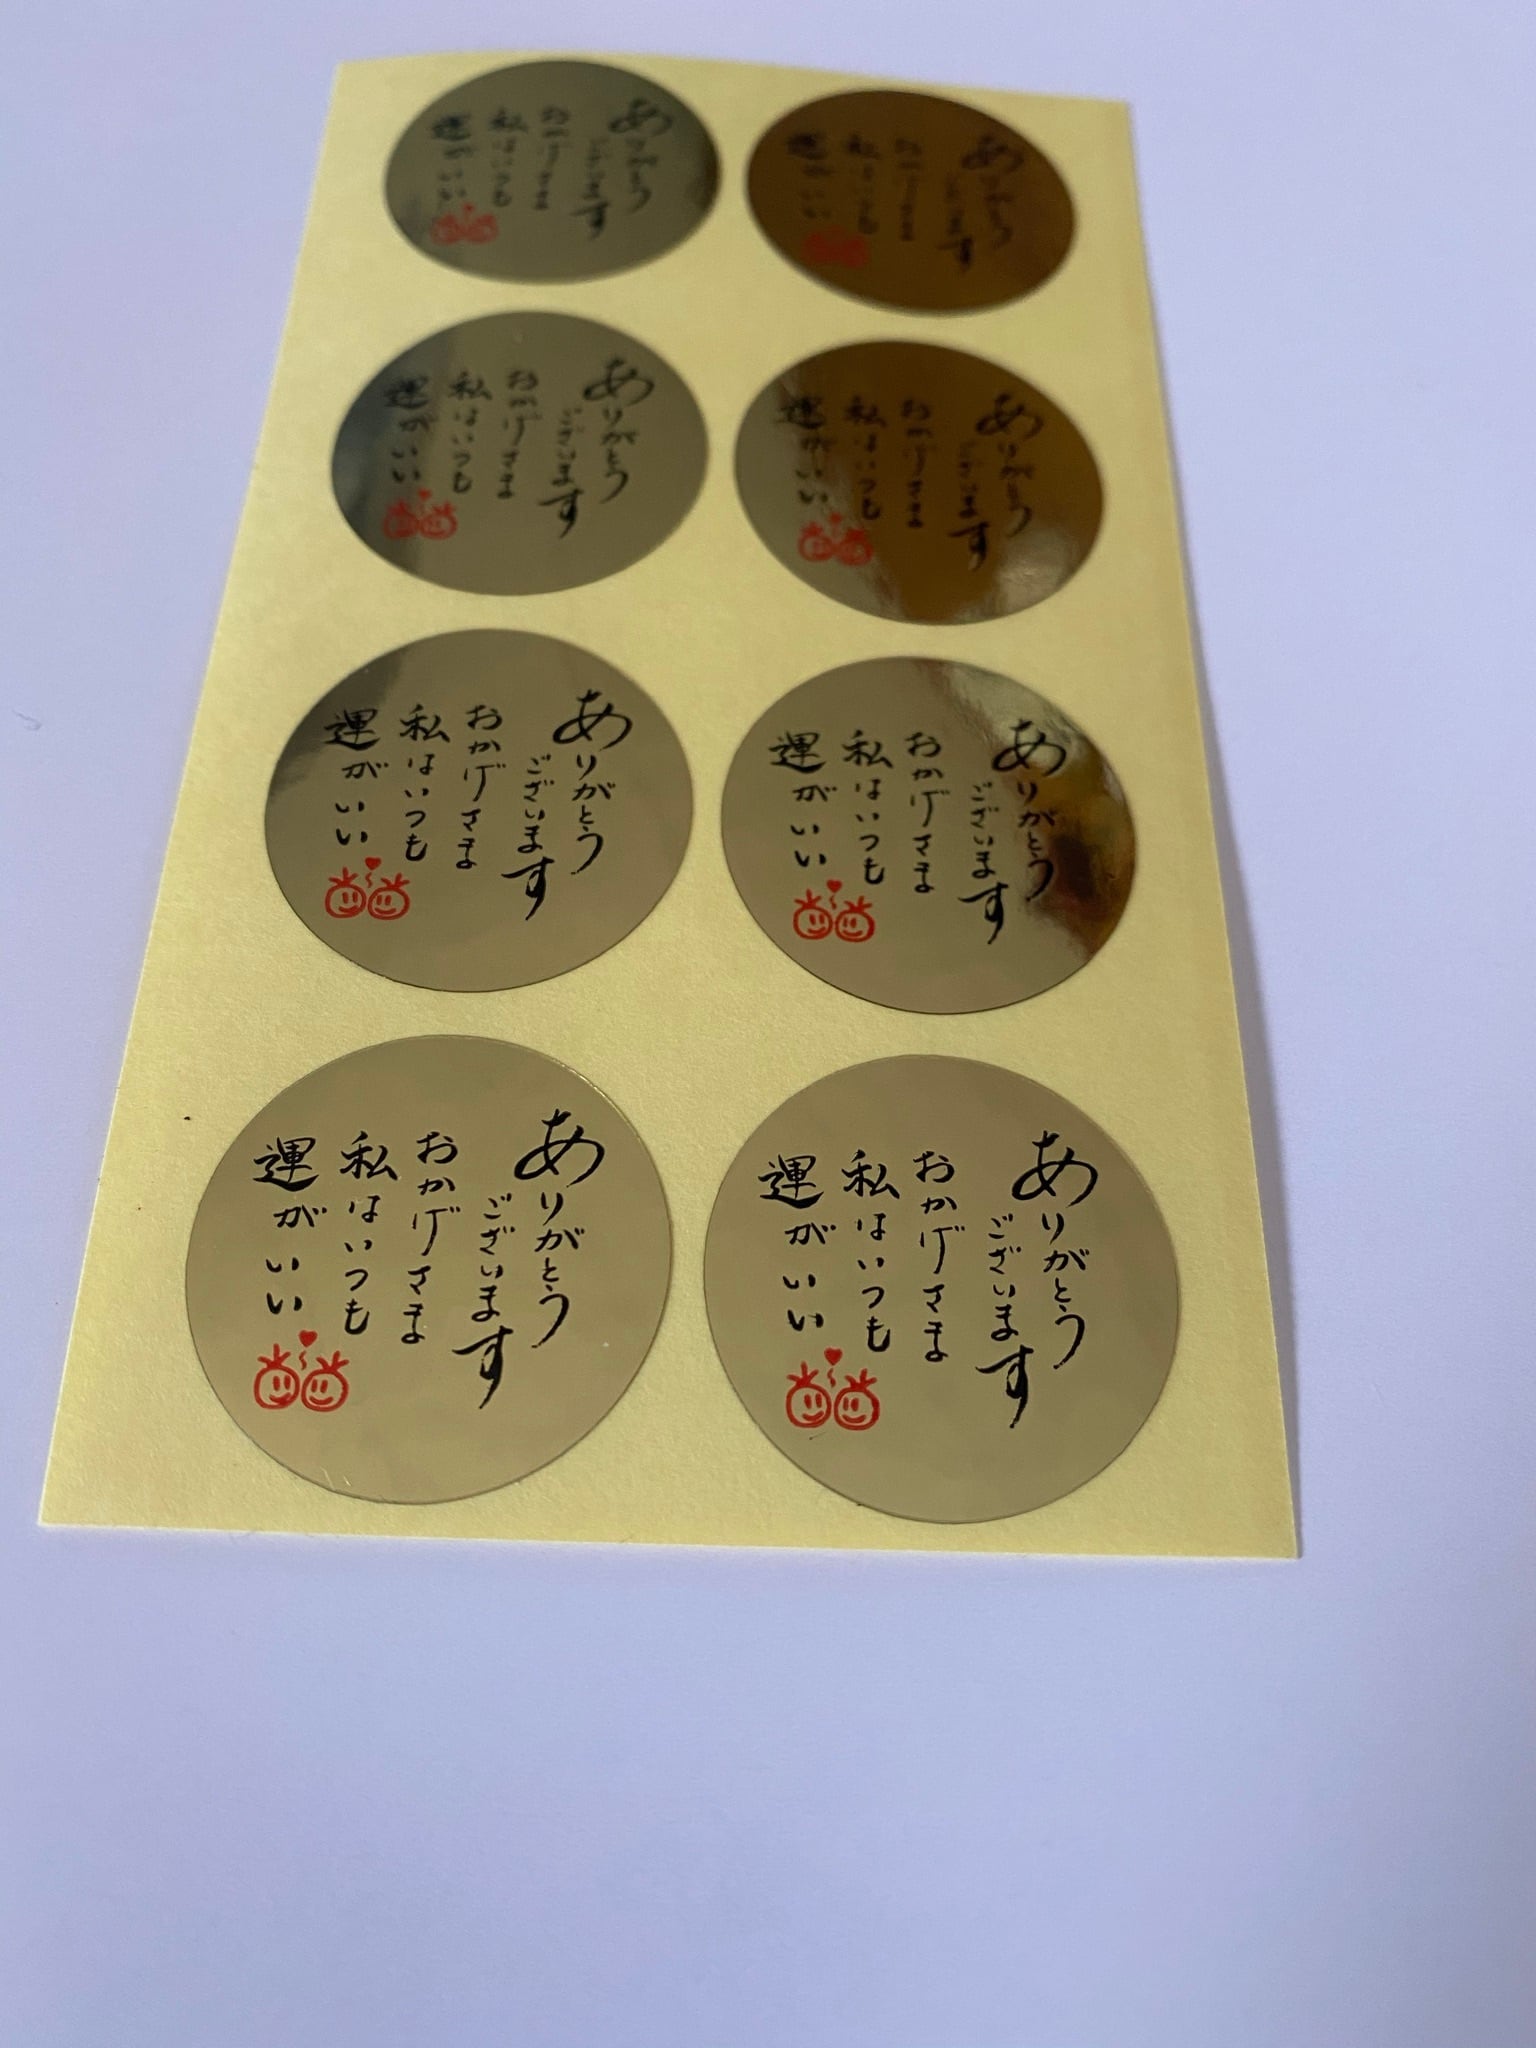 ありがとう
ございます
おかげさま
私はいつも
運がいい
ありがとう
ございます
おかげさま
私はいつも
運がいい
ありがとう
ございます
おかげさま
私はいつも
運がいい
ありがとう
ございます
おかげさま
私はいつも
運がいい
ありがとう
ございます
おかげさま
私はいつも
運がいい
ありがとう
ございます
おかげさま
私はいつも
運がいい
ありがとう
ございます
おかげさま
私はいつも
運がいい
ありがとう
ございます
おかげさま
私はいつも
運がいい